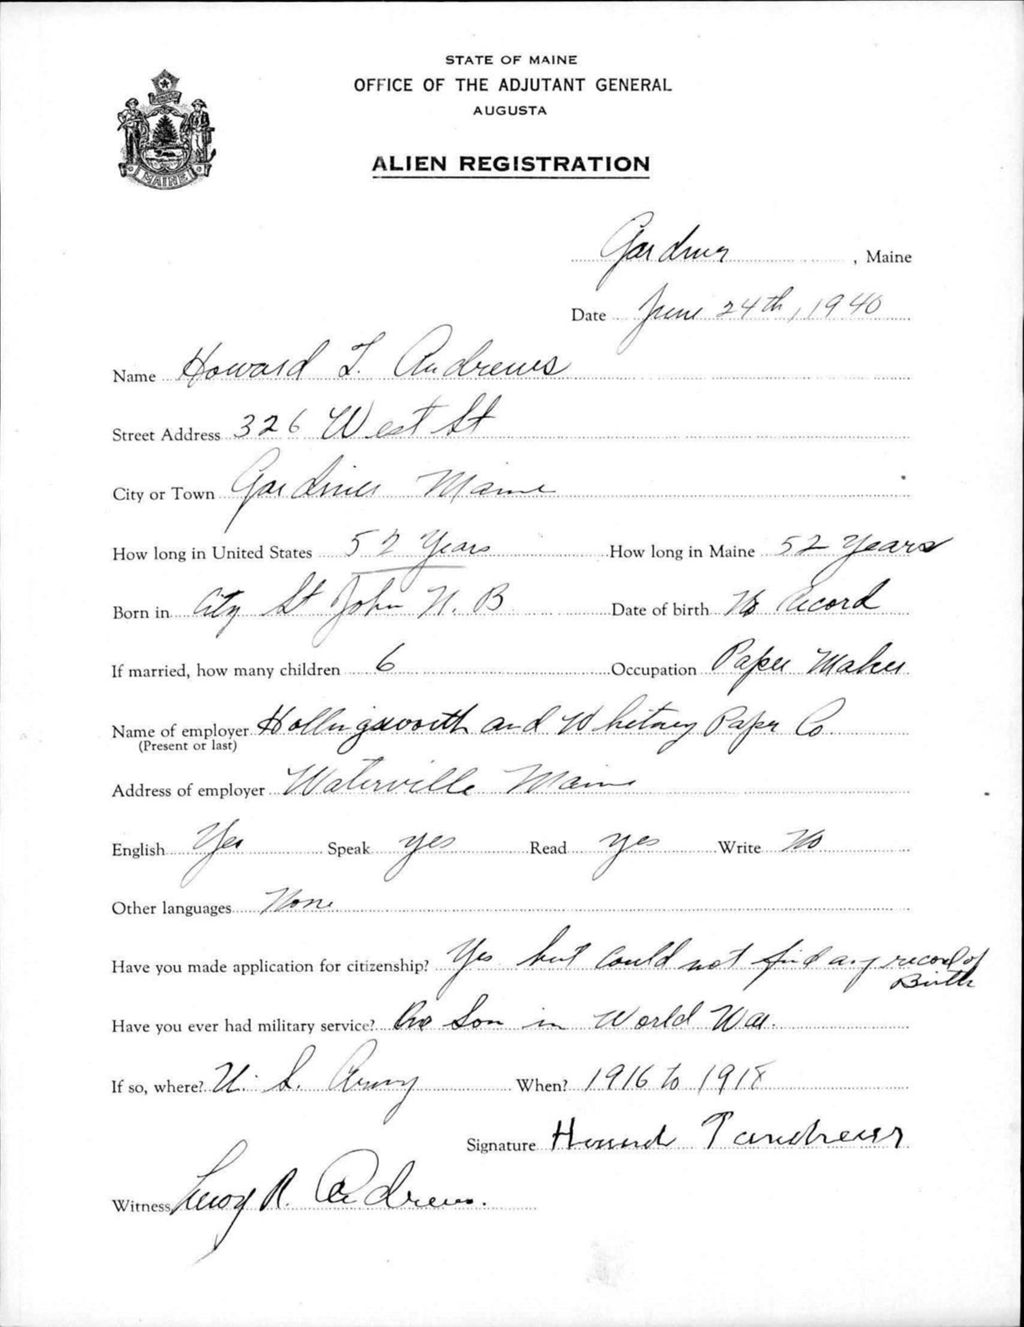 STATE OF MAINE
OFFICE OF THE ADJUTANT GENERAL
AUGUSTA
ALIEN REGISTRATION
MAINE
Gardiner, Maine
Date June 24th, 1940
Name Howard T. Andrews
Street Address 326 West St
City or Town Gardiner Maine
How long in United States 52 Years How long in Maine 52 Years
Born in City St John N. B Date of birth No Record
If married, how many children 6 Occupation Paper Maker
Name of employer Hollingsworth and Whitney Paper Co
(Present or last)
Address of employer Waterville Maine
English Yes Speak yes Read yes Write No
Other languages None
Have you made application for citizenship? Yes but Could not find any record of
Birth
Have you ever had military service? Son in World War.
If so, where? U. S. Army When? 1916 to 1918
Signature Howard T andrews
Witness Leroy R. Andrews.